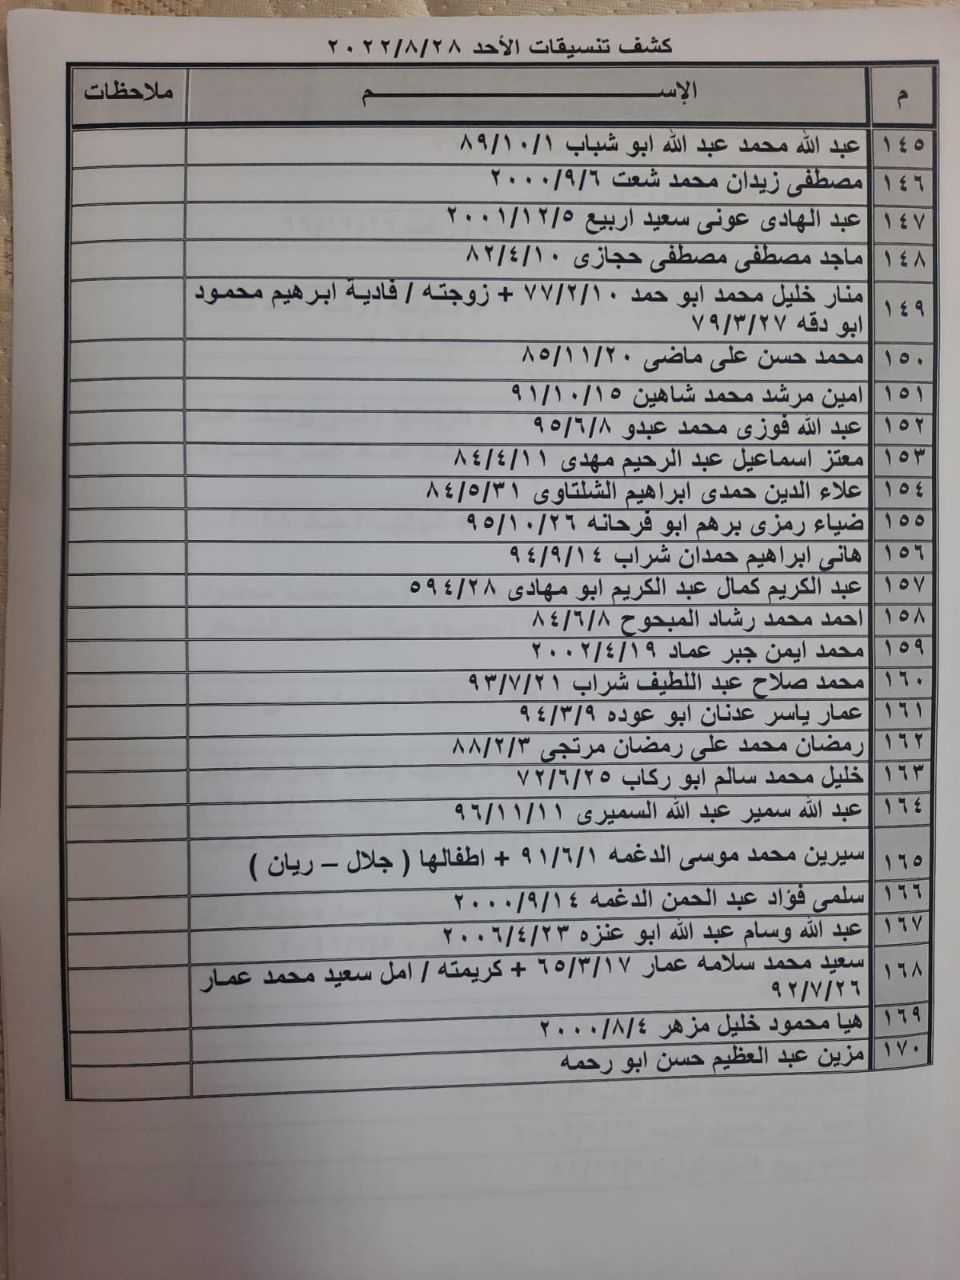 كشف تنسيقات الأحد ٢٠٢٢/٨/٢٨
م الإســـــــــــــــــم ملاحظات
١٤٥ عبد الله محمد عبد الله ابو شباب ٨٩/١٠/١
١٤٦ مصطفى زيدان محمد شعت ٢٠٠٠/٩/٦
١٤٧ عبد الهادى عونى سعيد اربيع ٢٠٠١/١٢/٥
١٤٨ ماجد مصطفى مصطفى حجازى ٨٢/٤/١٠
١٤٩ منار خليل محمد ابو حمد ٧٧/٢/١٠ + زوجته / فادية ابرهيم محمود
ابو دقه ٧٩/٣/٢٧
١٥٠ محمد حسن على ماضى ٨٥/١١/٢٠
١٥١ امين مرشد محمد شاهين ٩١/١٠/١٥
١٥٢ عبد الله فوزى محمد عبدو ٩٥/٦/٨
١٥٣ معتز اسماعيل عبد الرحيم مهدى ٨٤/٤/١١
١٥٤ علاء الدين حمدى ابراهيم الشلتاوى ٨٤/٥/٣١
١٥٥ ضياء رمزى برهم ابو فرحانه ٩٥/١٠/٢٦
١٥٦ هانى ابراهيم حمدان شراب ٩٤/٩/١٤
١٥٧ عبد الكريم كمال عبد الكريم ابو مهادى ٥٩٤/٢٨
١٥٨ احمد محمد رشاد المبحوح ٨٤/٦/٨
١٥٩ محمد ايمن جبر عماد ٢٠٠٢/٤/١٩
١٦٠ محمد صلاح عبد اللطيف شراب ٩٣/٧/٢١
١٦١ عمار ياسر عدنان ابو عوده ٩٤/٣/٩
١٦٢ رمضان محمد على رمضان مرتجى ٨٨/٢/٣
١٦٣ خليل محمد سالم ابو ركاب ٧٢/٦/٢٥
١٦٤ عبد الله سمير عبد الله السميرى ٩٦/١١/١١
١٦٥ سيرين محمد موسى الدغمه ٩١/٦/١ + اطفالها ( جلال – ريان )
١٦٦ سلمى فؤاد عبد الحمن الدغمه ٢٠٠٠/٩/١٤
١٦٧ عبد الله وسام عبد الله ابو عنزه ٢٠٠٦/٤/٢٣
١٦٨ سعيد محمد سلامه عمار ٦٥/٣/١٧ + كريمته / امل سعيد محمد عمار
٩٢/٧/٢٦
١٦٩ هيا محمود خليل مزهر ٢٠٠٠/٨/٤
١٧٠ مزين عبد العظيم حسن ابو رحمه